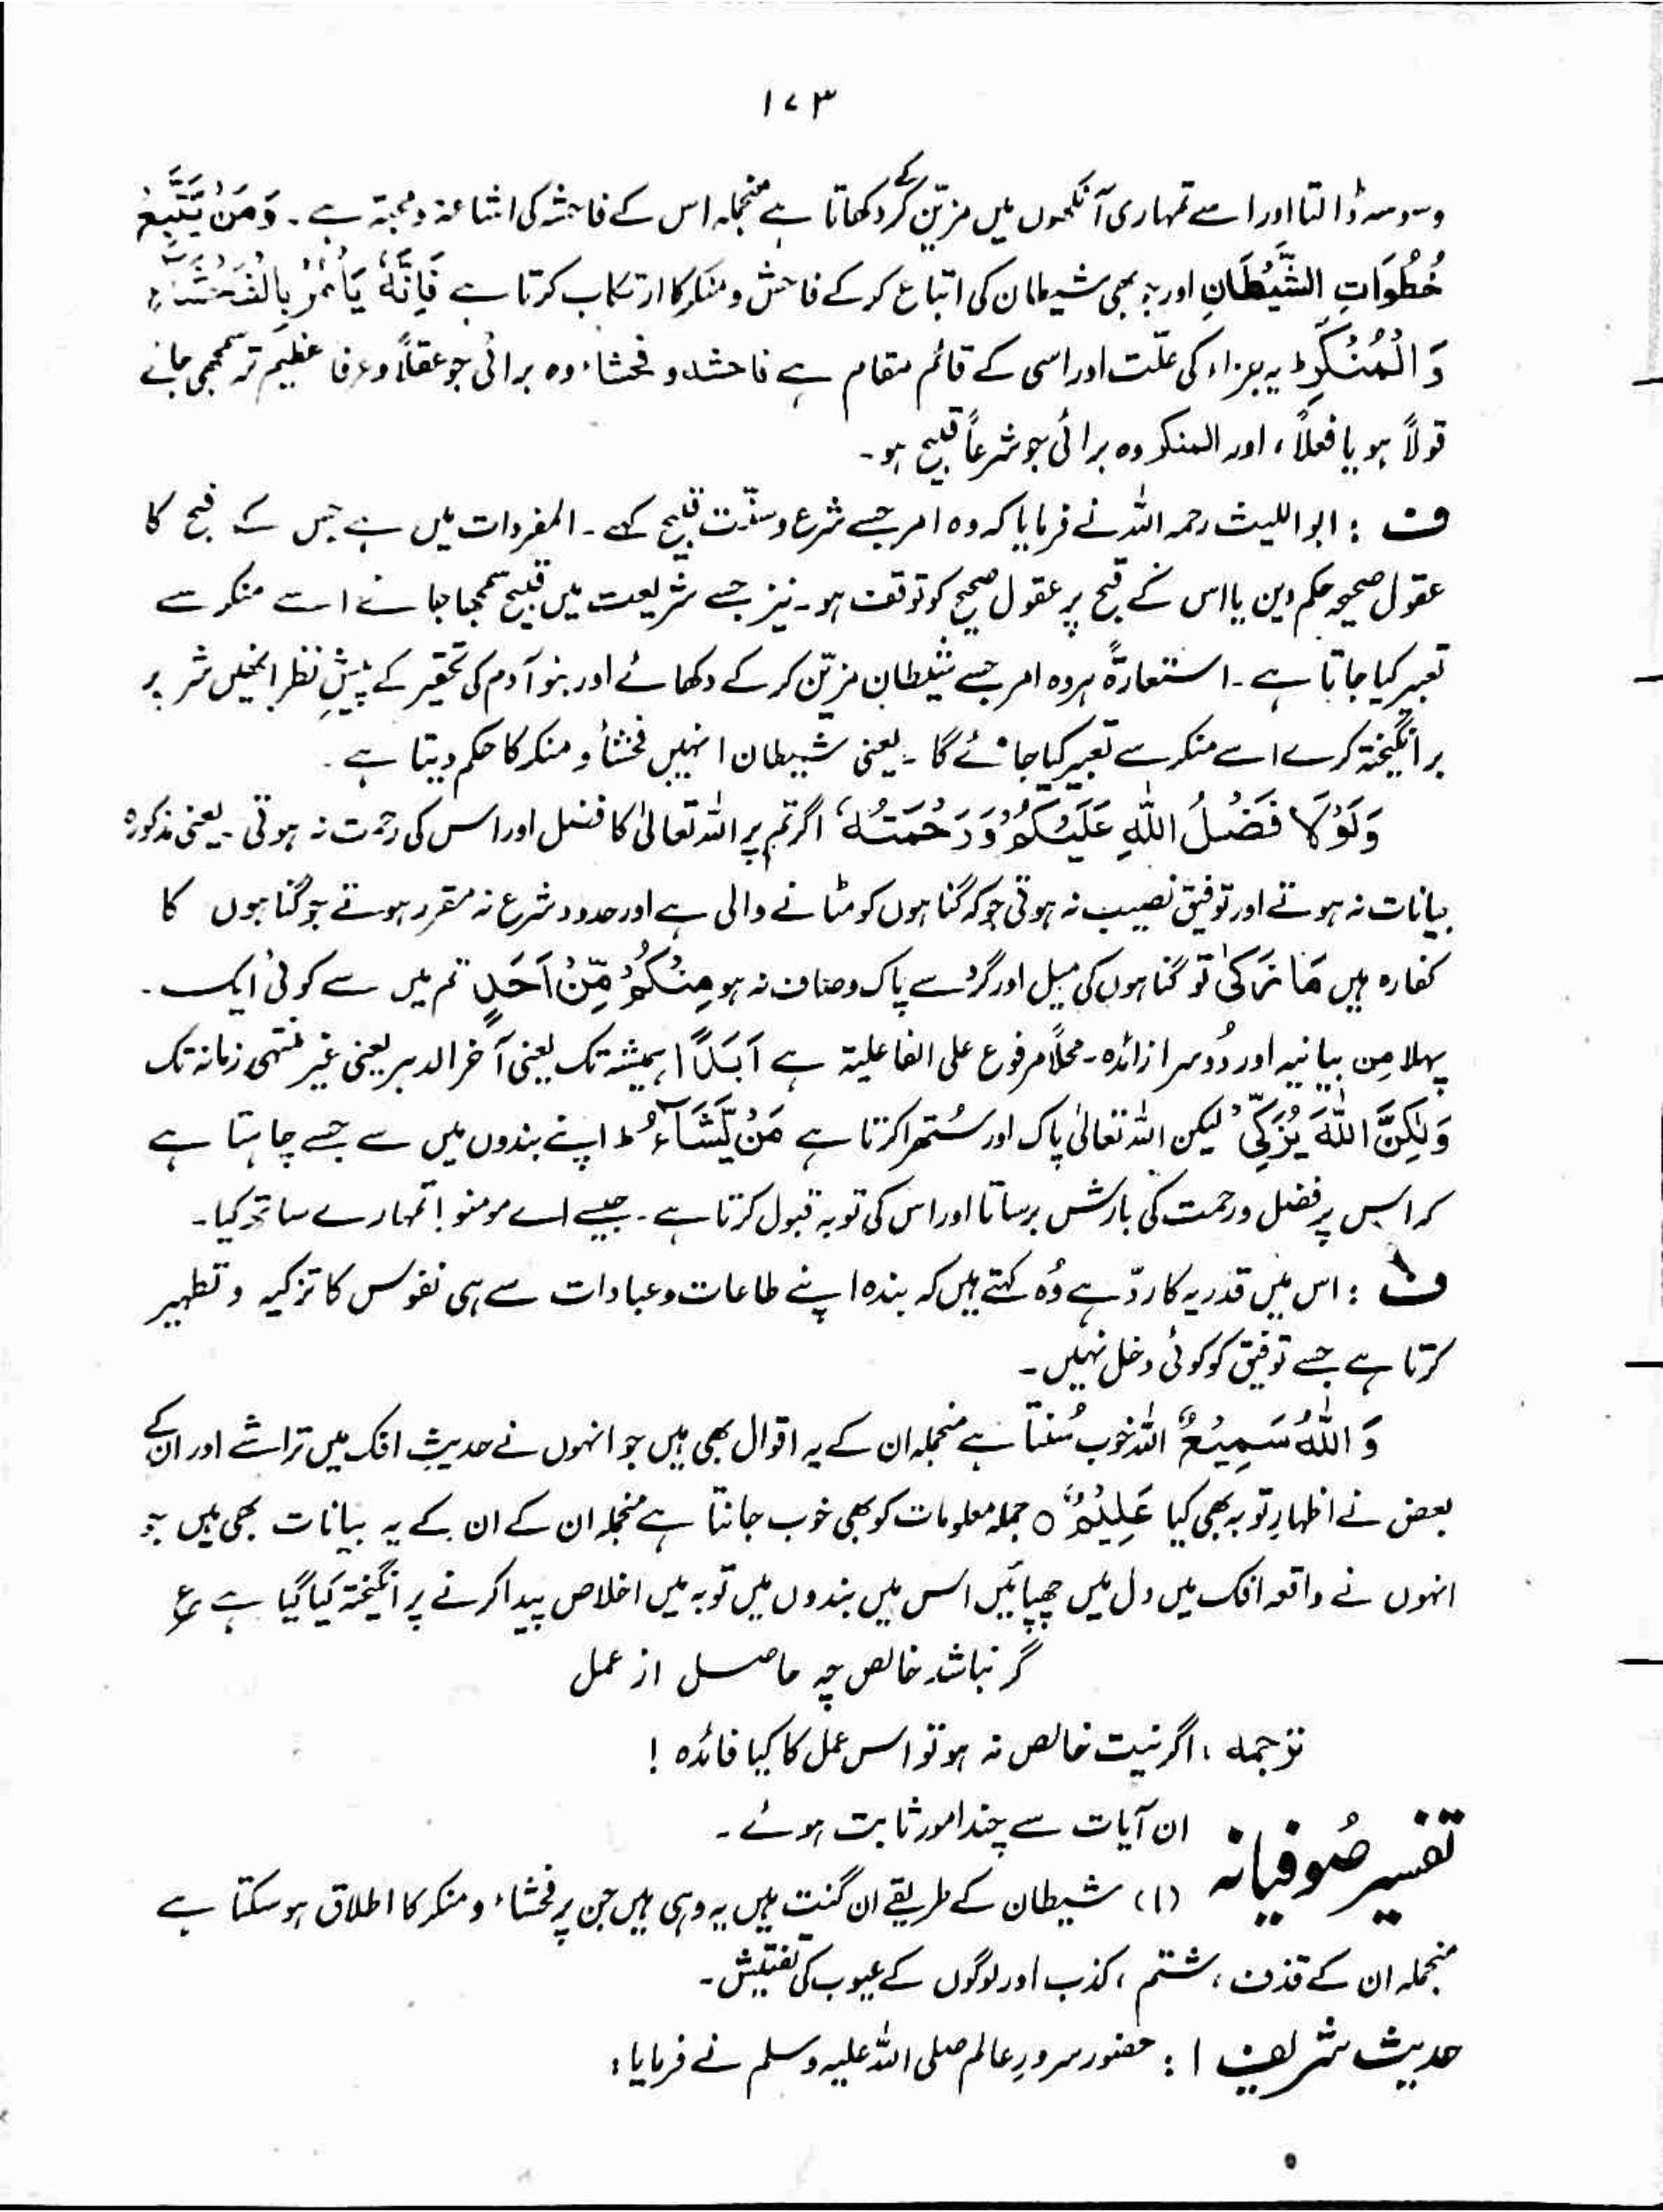 ۱۷۳
وسوسہ ڈالتا اور اسے تمہاری آنکھوں میں مزیّن کرکے دکھاتا ہے منجملہ اس کے فاحشہ کی اشاعۃ ومحبۃ ہے۔ وَمَنْ یَّتَّبِعْ
خُطُوَاتِ الشَّیْطَانِ اور جو بھی شیطان کی اتباع کرکے فاحش و منکر کا ارتکاب کرتا ہے فَاِنَّہٗ یَاْمُرُ بِالْفَحْشَآءِ
وَالْمُنْکَرِؕ یہ جزاء کی علّت اور اسی کے قائم مقام ہے فاحشہ و فحشاء وہ برائی جو عقلاً و عرفا عظیم تر سمجھی جائے
قولاً ہو یا فعلاً، اور المنکر وہ برائی جو شرعاً قبیح ہو۔
ف : ابو اللیث رحمہ اللہ نے فرمایا کہ وہ امر جسے شرع و سنّت قبیح کہے۔ المفردات میں ہے جس کے قبح کا
عقول صحیحہ حکم دیں یا اس کے قبح پر عقول صحیح کو توقف ہو۔ نیز جسے شریعت میں قبیح سمجھا جائے اسے منکر سے
تعبیر کیا جاتا ہے۔ استعارۃً ہر وہ امر جسے شیطان مزیّن کرکے دکھائے اور بنو آدم کی تحقیر کے پیشِ نظر انہیں شر پر
برانگیختہ کرے اسے منکر سے تعبیر کیا جائے گا۔ یعنی شیطان انہیں فحشأ و منکر کا حکم دیتا ہے۔
وَلَوْلَا فَضْلُ اللّٰہِ عَلَیْکُمْ وَرَحْمَتُہٗ اگر تم پر اللہ تعالیٰ کا فضل اور اس کی رحمت نہ ہوتی۔ یعنی مذکورہ
بیانات نہ ہوتے اور توفیق نصیب نہ ہوتی جو کہ گناہوں کو مٹانے والی ہے اور حدود شرع نہ مقرر ہوتے جو گناہوں کا
کفارہ ہیں مَا زَکٰی تو گناہوں کی میل اور گرد سے پاک و صاف نہ ہو مِنْکُمْ مِّنْ اَحَدٍ تم میں سے کوئی ایک۔
پہلا مِن بیانیہ اور دُوسرا زائدہ۔ محلاً مرفوع علی الفاعلیۃ ہے اَبَدًا ہمیشہ تک یعنی آخر الدہر یعنی غیر منتہی زمانہ تک
وَلٰکِنَّ اللّٰہَ یُزَکِّیْ لیکن اللہ تعالیٰ پاک اور سُتھرا کرتا ہے مَنْ یَّشَآءُؕ اپنے بندوں میں سے جسے چاہتا ہے
کہ اس پر فضل و رحمت کی بارش برساتا اور اس کی توبہ قبول کرتا ہے۔ جیسے اے مومنو! تمہارے ساتھ کیا۔
ف : اس میں قدریہ کا ردّ ہے وُہ کہتے ہیں کہ بندہ اپنے طاعات و عبادات سے ہی نفوس کا تزکیہ و تطہیر
کرتا ہے جسے توفیق کو کوئی دخل نہیں۔
وَاللّٰہُ سَمِیْعٌ اللہ خوب سُنتا ہے منجملہ ان کے یہ اقوال بھی ہیں جو انہوں نے حدیثِ افک میں تراشے اور ان کے
بعض نے اظہارِ توبہ بھی کیا عَلِیْمٌ ○ جملہ معلومات کو بھی خوب جانتا ہے منجملہ ان کے ان کے یہ بیانات بھی ہیں جو
انہوں نے واقعہ افک میں دل میں چھپائیں اس میں بندوں میں توبہ میں اخلاص پیدا کرنے پر انگیختہ کیا گیا ہے ع
گر نباشد خالص چہ حاصل از عمل
ترجمہ : اگر نیت خالص نہ ہو تو اس عمل کا کیا فائدہ !
تفسیر صُوفیانہ ان آیات سے چند امور ثابت ہوئے۔
(۱) شیطان کے طریقے ان گنت ہیں یہ وہی ہیں جن پر فحشاء و منکر کا اطلاق ہو سکتا ہے
منجملہ ان کے قذف ، شتم ، کذب اور لوگوں کے عیوب کی تفتیش۔
حدیث شریف ۱ : حضور سرورِ عالم صلی اللہ علیہ وسلم نے فرمایا :